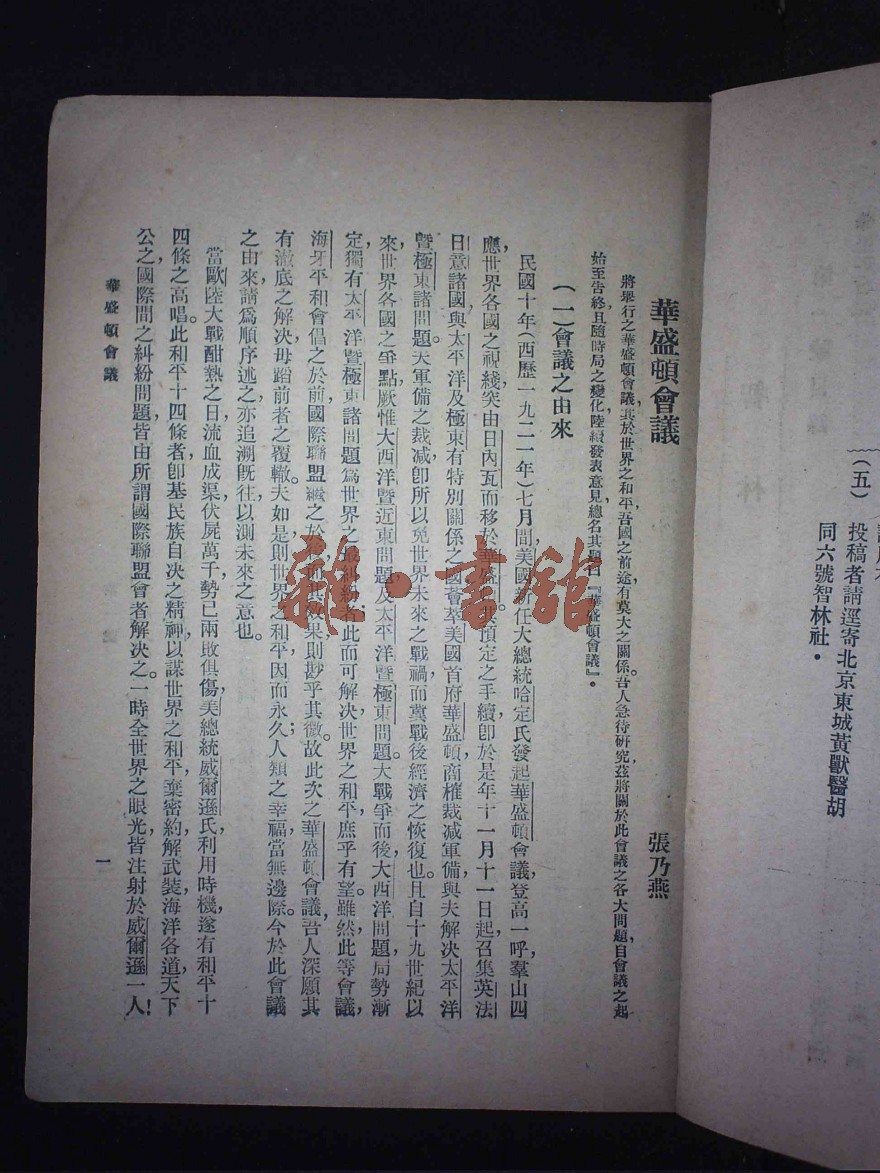 (五)投稿者請逕寄北京東城黃獸醫胡
同六號智林社•
華盛頓會議
張乃燕
將舉行之華盛頓會議其於世界之和平吾國之前途有莫大之關係吾人急待研究茲將關於此會議之各大問題自會議之起
始至告終且隨時局之變化陸續發表意見總名其題曰『華盛頓會議』•
(一)會議之由來
民國十年(西歷一九二一年)七月間美國新任大總統哈定氏發起華盛頓會議登高一呼羣山四
應世界各國之視綫突由日內瓦而移於華盛頓其預定之手續卽於是年十一月十一日起召集英法
日意諸國與太平洋及極東有特別關係之國薈萃美國首府華盛頓商榷裁減軍備與夫解決太平洋
暨極東諸問題。夫軍備之裁減卽所以免世界未來之戰禍而冀戰後經濟之恢復也。且自十九世紀以
來世界各國之爭點厥惟大西洋暨近東問題及太平洋暨極東問題。大戰爭而後大西洋問題局勢漸
定獨有太平洋暨極東諸問題爲世界之最糾紛者此而可解決世界之和平庶乎有望。雖然此等會議,
海牙平和會倡之於前國際聯盟繼之於後而其效果則尠乎其微。故此次之華盛頓會議吾人深願其
有澈底之解決毋蹈前者之覆轍。夫如是則世界之和平因而永久人類之幸福當無邊際。今於此會議
之由來請爲順序述之亦追溯旣往以測未來之意也。
當歐陸大戰酣熱之日流血成渠伏屍萬千勢已兩敗俱傷美總統威爾遜氏利用時機遂有和平十
四條之高唱。此和平十四條者卽基民族自決之精神以謀世界之和平棄密約解武裝海洋各道天下
公之國際間之糾紛問題,皆由所謂國際聯盟會者解決之。一時全世界之眼光皆注射於威爾遜一人!
華盛頓會議
一
雜•書館